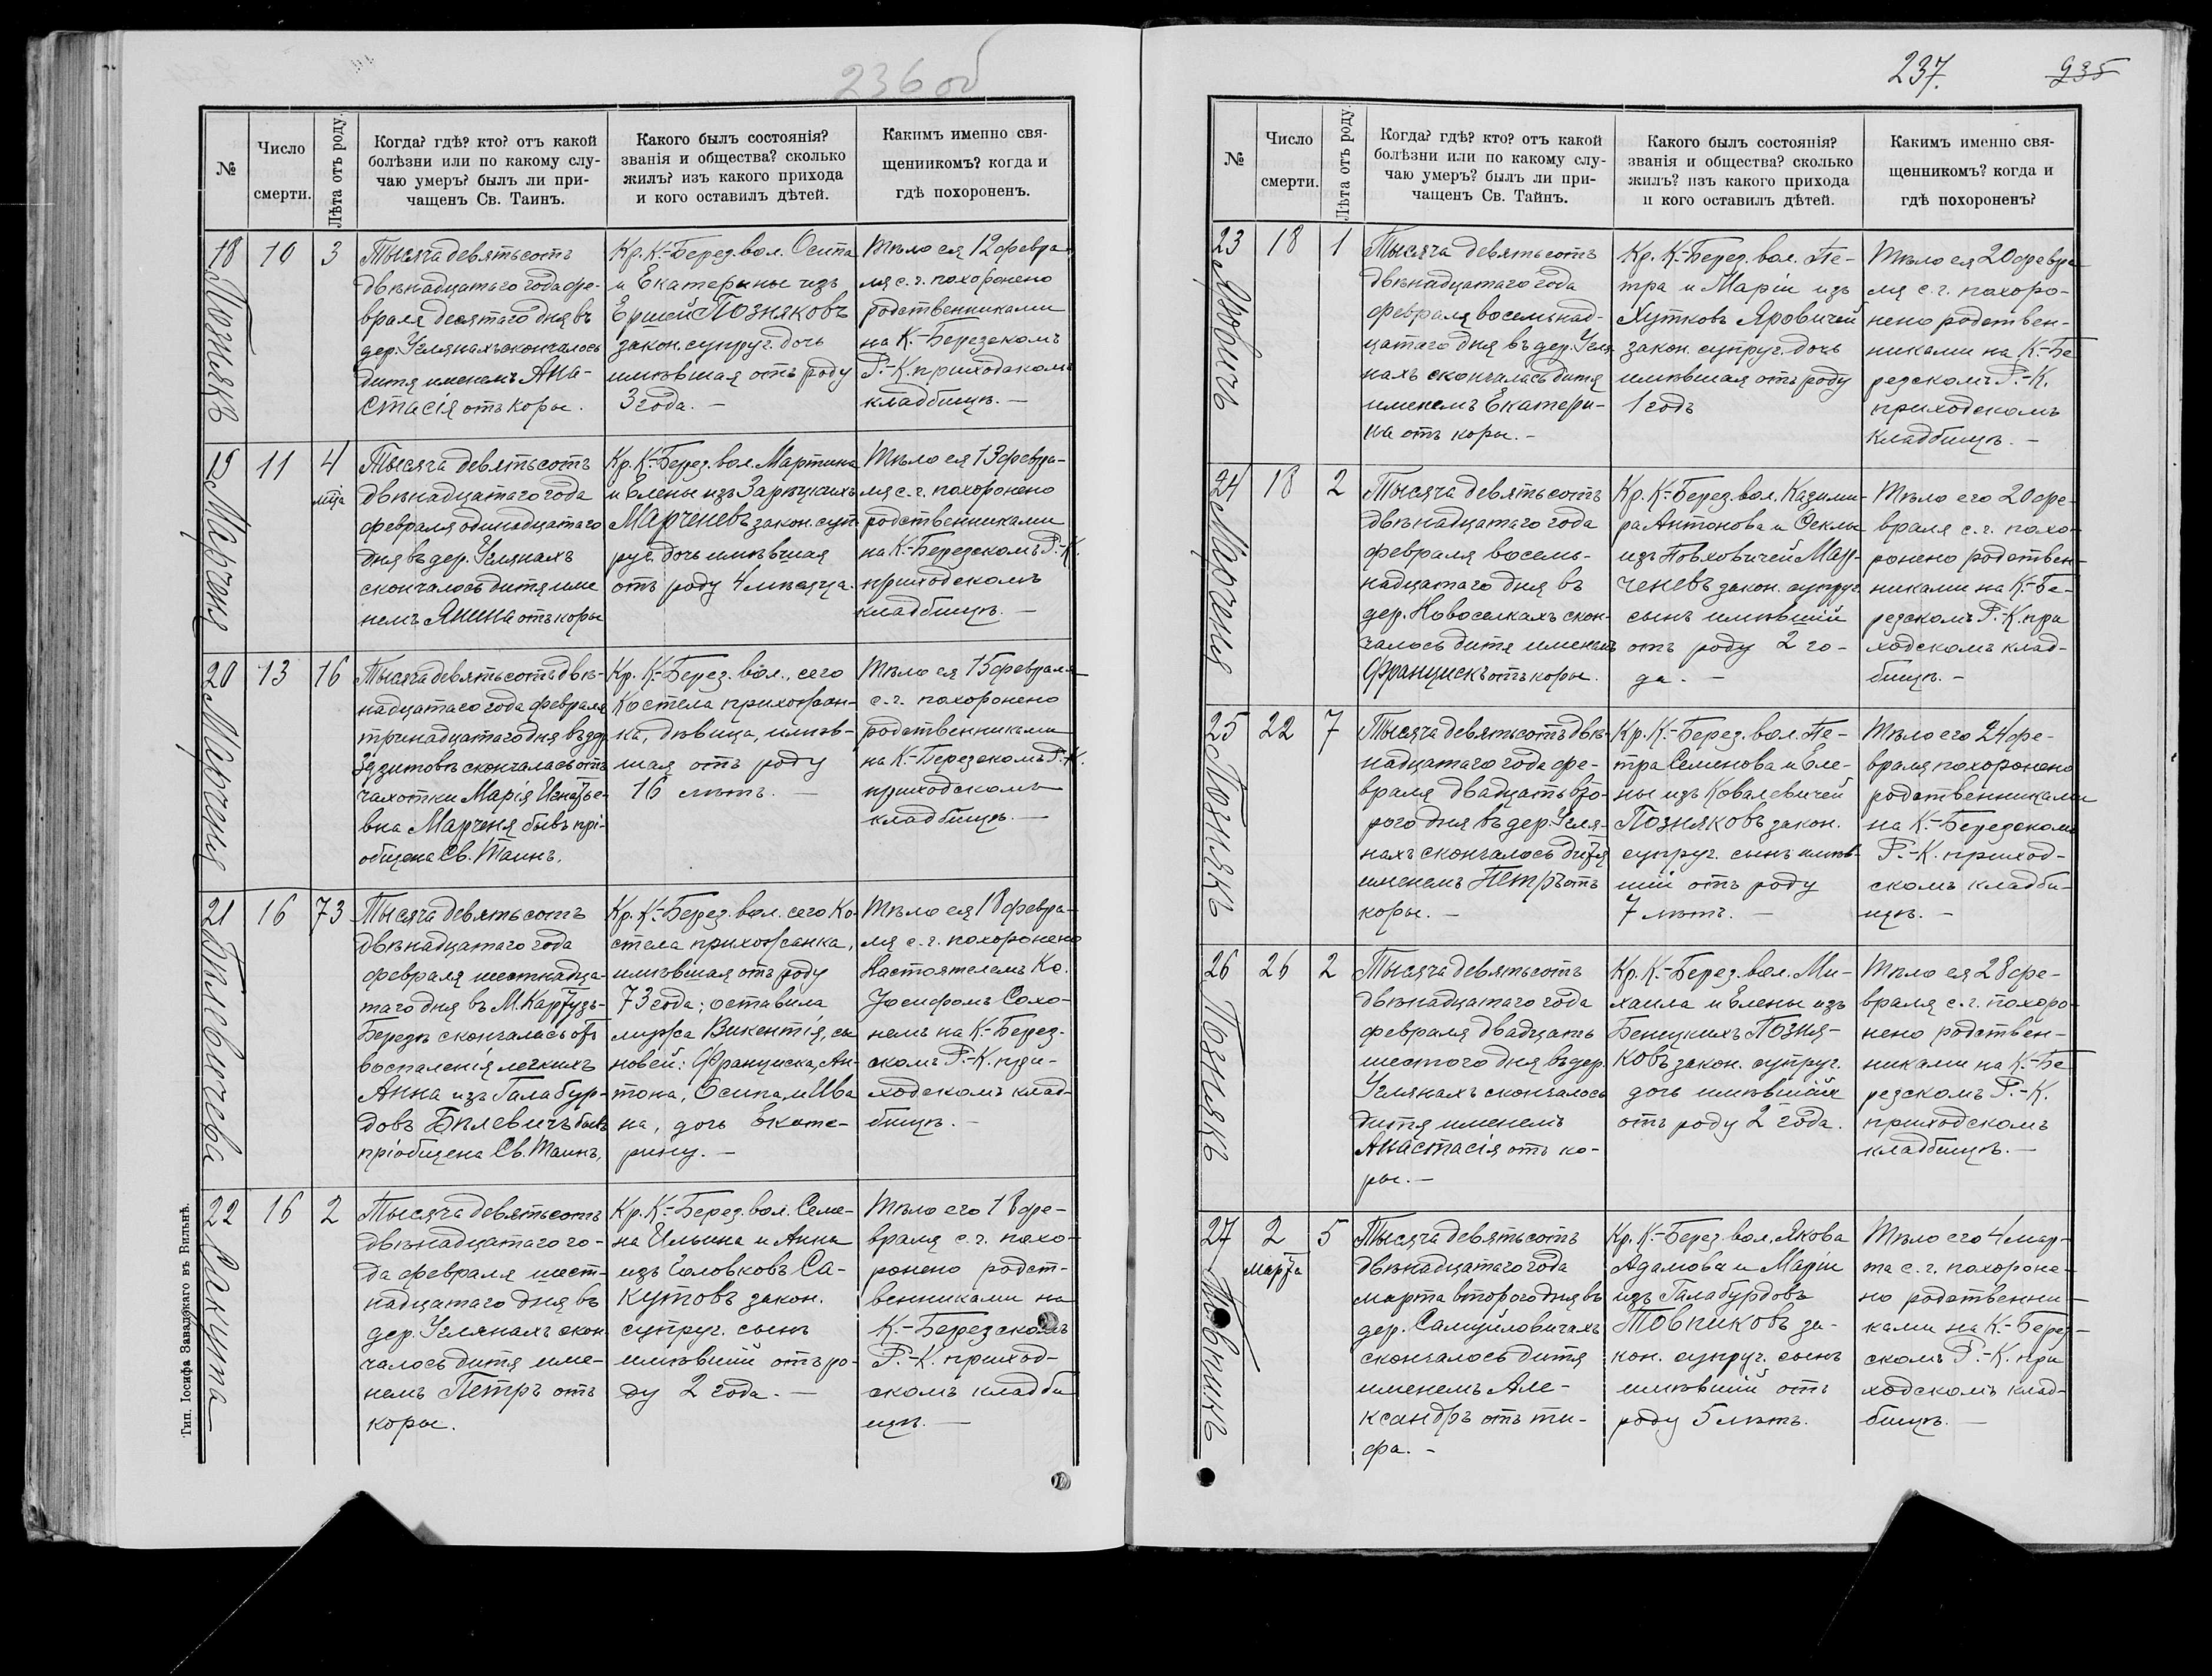 236 об
№
Число
смерти.
Лѣта отъ роду.
Когда? гдѣ? кто? отъ какой
болѣзни или по какому слу-
чаю умеръ? былъ ли при-
чащенъ Св. Таинъ.
Какого былъ состоянія?
званія и общества? сколько
жилъ? изъ какого прихода
и кого оставилъ дѣтей.
Какимъ именно свя-
щенникомъ? когда и
гдѣ похороненъ.
18
Познякъ
10
3
Тысяча девятьсотъ
двѣнадцатаго года фе-
враля десятаго дня въ
дер. Углянахъ скончалось
дитя именемъ Ана-
стасія отъ коры.
Кр. К.-Берез. вол. Осипа
и Екатерины изъ
Ершей Позняковъ
закон. супруг. дочь
имѣвшая отъ роду
3 года. –
Тѣло ея 12 февра-
ля с. г. похоронено
родственниками
на К.-Березскомъ
Р.-К. приходскомъ
кладбищѣ. –
19
Марченя
11
4
мца
Тысяча девятьсотъ
двѣнадцатаго года
февраля одинадцатаго
дня въ дер. Углянахъ
скончалось дитя име
немъ Янина отъ коры
Кр. К.-Берез. вол. Мартина
и Елены изъ Зарѣцкихъ
Марченевъ закон. суп
руг. дочь имѣвшая
отъ роду 4 мѣсяца.
Тѣло ея 13 февра-
ля с. г. похоронено
родственниками
на К.-Березскомъ Р.-К.
приходскомъ
кладбищѣ. –
20
Марченя
13
16
Тысяча девятьсотъ двѣ-
надцатаго года февраля
тринадцатаго дня въ дер.
Здзитовѣ скончалась отъ
чахотки Марія Игнатье-
вна Марченя бывъ прі-
общена Св. Таинъ.
Кр. К.-Берез. вол., сего
Костела прихожан-
ка, дѣвица, имѣв-
шая отъ роду
16 лѣтъ. –
Тѣло ея 15 февраля
с. г. похоронено
родственниками
на К.-Березскомъ Р.-К.
приходскомъ
кладбищѣ. –
21
Бѣлевичева
16
73
Тысяча девятьсотъ
двѣнадцатаго года
февраля шестнадца-
таго дня въ М. Картузъ-
Березѣ скончалась отъ
воспаленія легкихъ
Анна изъ Галабур-
довъ Бѣлевичъ бывъ
пріобщена Св. Таинъ.
Кр. К.-Берез. вол. сего Ко-
стела прихожанка,
имѣвшая отъ роду
73 года; оставила
мужа Викентія, сы
новей: Франциска, Ан-
тона, Осипа, и Ива
на, дочь Екате-
рину. –
Тѣло ея 18 февра-
ля с. г. похоронено
Настоятелемъ Кс.
Іосифомъ Сохо-
немъ на К.-Берез-
скомъ Р.-К. при-
ходскомъ клад-
бищѣ. –
22
Сакута
16
2
Тысяча девятьсотъ
двѣнадцатаго го-
да февраля шест-
надцатаго дня въ
дер. Углянахъ скон
чалось дитя име-
немъ Петръ отъ
коры.
Кр. К.-Берез. вол. Семе-
на Ильина и Анны
изъ Головковъ Са-
кутовъ закон.
супруг. сынъ
имѣвшій отъ ро-
ду 2 года. –
Тѣло его 18 фе-
враля с. г. похо-
ронено родст-
венниками на
К.-Березскомъ
Р.-К. приход-
скомъ кладби
щѣ. –
Тип. Іосифа Завадзкаго въ Вильнѣ.
237.
935
№
Число
смерти.
Лѣта отъ роду.
Когда? гдѣ? кто? отъ какой
болѣзни или по какому слу-
чаю умеръ? былъ ли при-
чащенъ Св. Тайнъ.
Какого былъ состоянія?
званія и общества? сколько
жилъ? изъ какого прихода
и кого оставилъ дѣтей.
Какимъ именно свя-
щенникомъ? когда и
гдѣ похороненъ?
23
Яровичъ
18
1
Тысяча девятьсотъ
двѣнадцатаго года
февраля восемьнад-
цатаго дня въ дер. Угля
нахъ скончалась дитя
именемъ Екатери-
на отъ коры. –
Кр. К.-Берез. вол. Пе-
тра и Маріи изъ
Хутковъ Яровичей
закон. супруг. дочь
имѣвшая отъ роду
1 годъ
Тѣло ея 20 февра
ля с. г. похоро-
нено родствен-
никами на К.-Бе
резскомъ Р.-К.
приходскомъ
кладбищѣ. –
24
Марченя
18
2
Тысяча девятьсотъ
двѣнадцатаго года
февраля восемь-
надцатаго дня въ
дер. Новоселкахъ скон-
чалось дитя именемъ
Францискъ отъ коры.
Кр. К.-Берез. вол. Казими-
ра Антонова и Феклы
изъ Повховичей Мар-
ченевъ закон. супруг.
сынъ имѣвшій
отъ роду 2 го-
да. –
Тѣло его 20 фе-
враля с. г. похо-
ронено родствен-
никами на К.-Бе-
резскомъ Р.-К. при
ходскомъ клад-
бищѣ. –
25
Познякъ
22
7
Тысяча девятьсотъ двѣ-
надцатаго года фе-
враля двадцать вто-
рого дня въ дер. Угля-
нахъ скончалось дитя
именемъ Петръ отъ
коры. –
Кр. К.-Берез. вол. Пе-
тра Семенова и Еле-
ны изъ Ковалевичей
Позняковъ закон.
супруг. сынъ имѣв-
шій отъ роду
7 лѣтъ. –
Тѣло его 24 фе-
враля похоронено
родственниками
на К.-Березскомъ
Р.-К. приход-
скомъ кладби-
щѣ. –
26
Познякъ
26
2
Тысяча девятьсотъ
двѣнадцатаго года
февраля двадцать
шестого дня въ дер.
Углянахъ скончалось
дитя именемъ
Анастасія отъ ко-
ры. –
Кр. К.-Берез. вол. Ми-
хаила и Елены изъ
Бенецкихъ Позня-
ковъ закон. супруг.
дочь имѣвшая
отъ роду 2 года.
Тѣло ея 28 фе-
враля с. г. похоро-
нено родствен-
никами на К.-Бе
резскомъ Р.-К.
приходскомъ
кладбищѣ. –
27
Товпикъ
2
марта
5
Тысяча девятьсотъ
двѣнадцатаго года
марта второго дня въ
дер. Самуйловичахъ
скончалось дитя
именемъ Але-
ксандръ отъ ти-
фа. –
Кр. К.-Берез. вол. Якова
Адамова и Маріи
изъ Галабурдовъ
Товпиковъ за-
кон. супруг. сынъ
имѣвшій отъ
роду 5 лѣтъ.
Тѣло его 4 мар-
та с. г. похороне-
но родственни-
ками на К.-Берез-
скомъ Р.-К. при
ходскомъ клад-
бищѣ. –